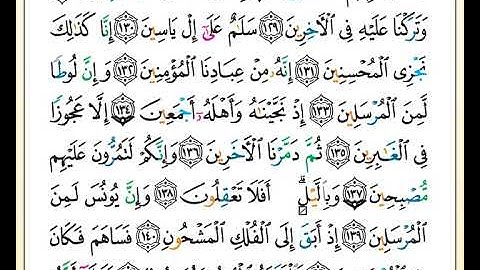 وَتَرَكْنَا عَلَيْهِ فِى ٱلْـَٔاخِرِينَ ١٢٩ سَلَـٰمٌ عَلَىٰٓ إِلْ يَاسِينَ ١٣٠ إِنَّا كَذَٰلِكَ
نَجْزِى ٱلْمُحْسِنِينَ ١٣١ إِنَّهُۥ مِنْ عِبَادِنَا ٱلْمُؤْمِنِينَ ١٣٢ وَإِنَّ لُوطًا
لَّمِنَ ٱلْمُرْسَلِينَ ١٣٣ إِذْ نَجَّيْنَـٰهُ وَأَهْلَهُۥٓ أَجْمَعِينَ ١٣٤ إِلَّا عَجُوزًا
فِى ٱلْغَـٰبِرِينَ ١٣٥ ثُمَّ دَمَّرْنَا ٱلْـَٔاخَرِينَ ١٣٦ وَإِنَّكُمْ لَتَمُرُّونَ عَلَيْهِم
مُّصْبِحِينَ ١٣٧ وَبِٱلَّيْلِ ۗ أَفَلَا تَعْقِلُونَ ١٣٨ وَإِنَّ يُونُسَ لَمِنَ
ٱلْمُرْسَلِينَ ١٣٩ إِذْ أَبَقَ إِلَى ٱلْفُلْكِ ٱلْمَشْحُونِ ١٤٠ فَسَاهَمَ فَكَانَ